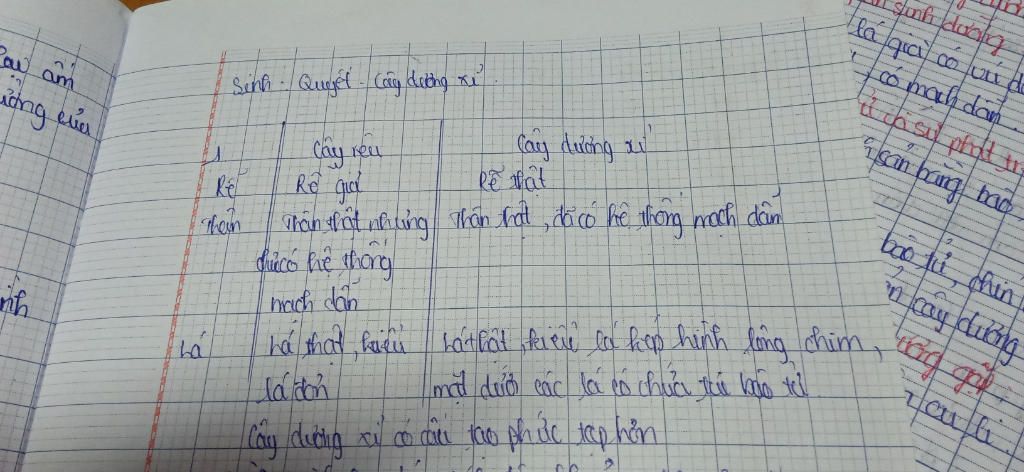 Sinh - Quyết - Cây dương xỉ
1 Cây rêu Cây dương xỉ
Rễ Rễ giả Rễ thật
Thân Thân thật nhưng Thân thật, đã có hệ thống mạch dẫn
chưa có hệ thống
mạch dẫn
Lá Lá thật, kiểu Lá thật, kiểu lá kép hình lông chim,
lá đơn mặt dưới các lá có chứa túi bào tử
Cây dương xỉ có cấu tạo phức tạp hơn
ẩm
của
sinh dưỡng
lá già có
có mạch dẫn
có sự phát
bằng bào
bào tử, chín
cây dương